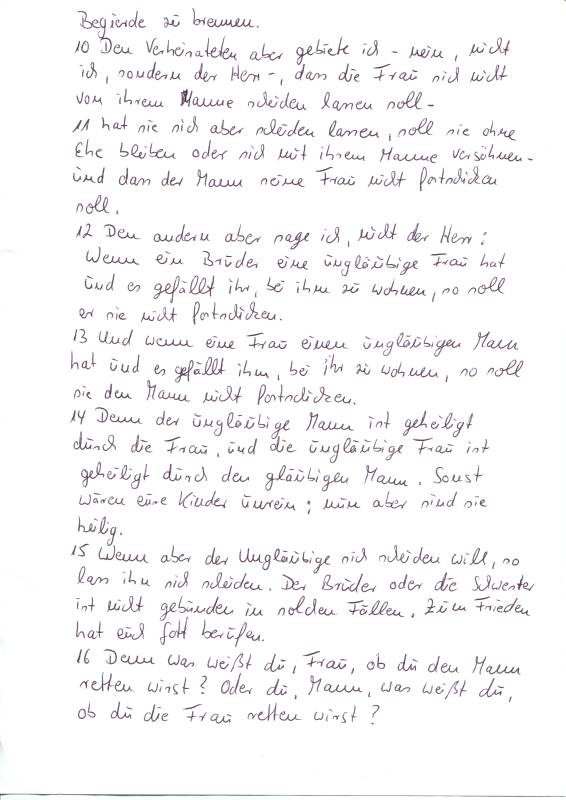 Begierde zu brennen.
10 Den Verheirateten aber gebiete ich - nein, nicht
ich, sondern der Herr -, dass die Frau sich nicht
von ihrem Manne scheiden lassen soll -
11 hat sie sich aber scheiden lassen, soll sie ohne
Ehe bleiben oder sich mit ihrem Manne versöhnen -
und dass der Mann seine Frau nicht fortschicken
soll.
12 Den andern aber sage ich, nicht der Herr:
Wenn ein Bruder eine ungläubige Frau hat
und es gefällt ihr, bei ihm zu wohnen, so soll
er sie nicht fortschicken.
13 Und wenn eine Frau einen ungläubigen Mann
hat und es gefällt ihm, bei ihr zu wohnen, so soll
sie den Mann nicht fortschicken.
14 Denn der ungläubige Mann ist geheiligt
durch die Frau, und die ungläubige Frau ist
geheiligt durch den gläubigen Mann. Sonst
wären eure Kinder unrein; nun aber sind sie
heilig.
15 Wenn aber der Ungläubige sich scheiden will, so
lass ihn sich scheiden. Der Bruder oder die Schwester
ist nicht gebunden in solchen Fällen. Zum Frieden
hat euch Gott berufen.
16 Denn was weißt du, Frau, ob du den Mann
retten wirst? Oder du, Mann, was weißt du,
ob du die Frau retten wirst?